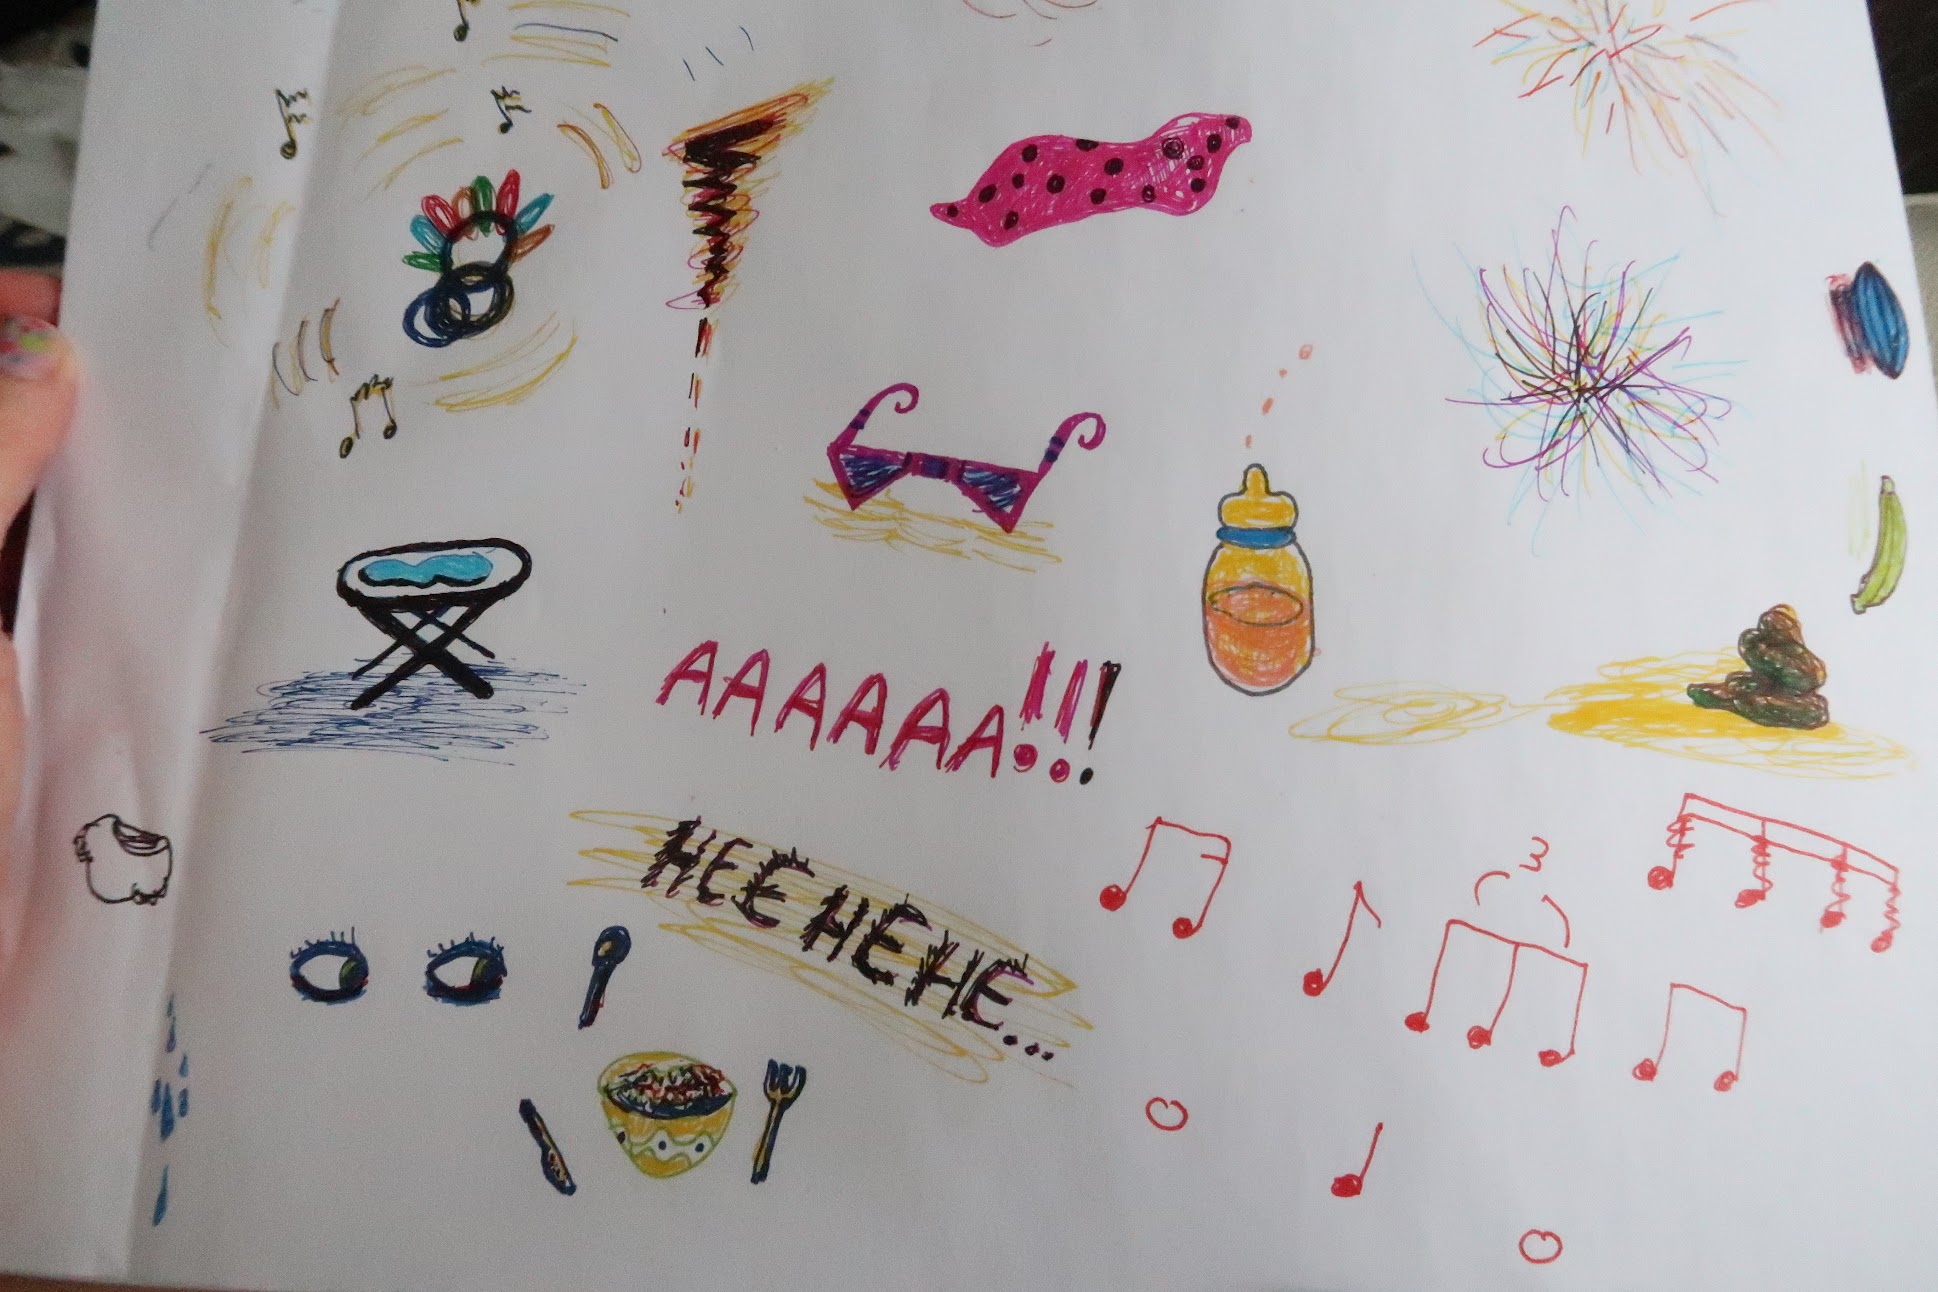 AAAAAA!!!
HEE HEHE...